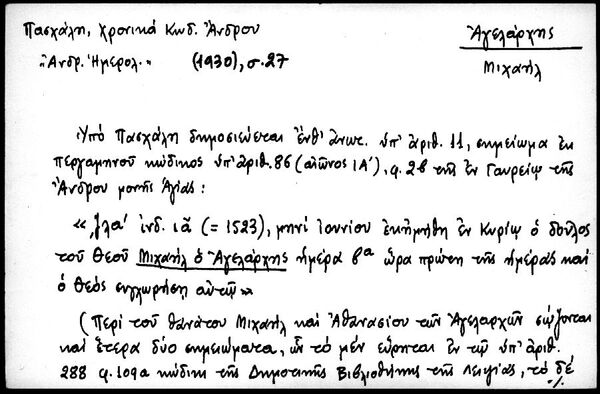 Πασχάλη, χρονικά Κωδ. Ἄνδρου
Ἀγελάρχης
"Ἀνδρ. Ἡμερολ." (1930), σ. 27
Μιχαήλ
Ὑπό Πασχάλη δημοσιεύεται ἔνθ' ἀνωτ. ὑπ' ἀριθ. 11, σημείωμα ἐκ
περγαμηνοῦ κώδικος ὑπ' ἀριθ. 86 (αἰῶνος ΙΑ'), φ. 2β τῆς ἐν Γαυρείῳ τῆς
Ἄνδρου μονῆς Ἁγίας:
« ͵ζλα' ἰνδ. ια (= 1523), μηνί Ἰουνίου ἐκημήθη ἐν Κυρίῳ ὁ δοῦλος
τοῦ Θεοῦ Μιχαήλ ὁ Ἀγελάρχης ἡμέρα βα ὥρα πρώτη τῆς ἡμέρας καί
ὁ Θεός συγχωρήση αὐτῷ»
(Περί τοῦ θανάτου Μιχαήλ καί Ἀθανασίου τῶν Ἀγελαρχῶν σῴζονται
καί ἕτερα δύο σημειώματα, ὧν τό μέν εὕρηται ἐν τῷ ὑπ' ἀριθ.
288 φ. 109α κώδικι τῆς Δημοτικῆς Βιβλιοθήκης τῆς Λειψίας, τό δέ
./.